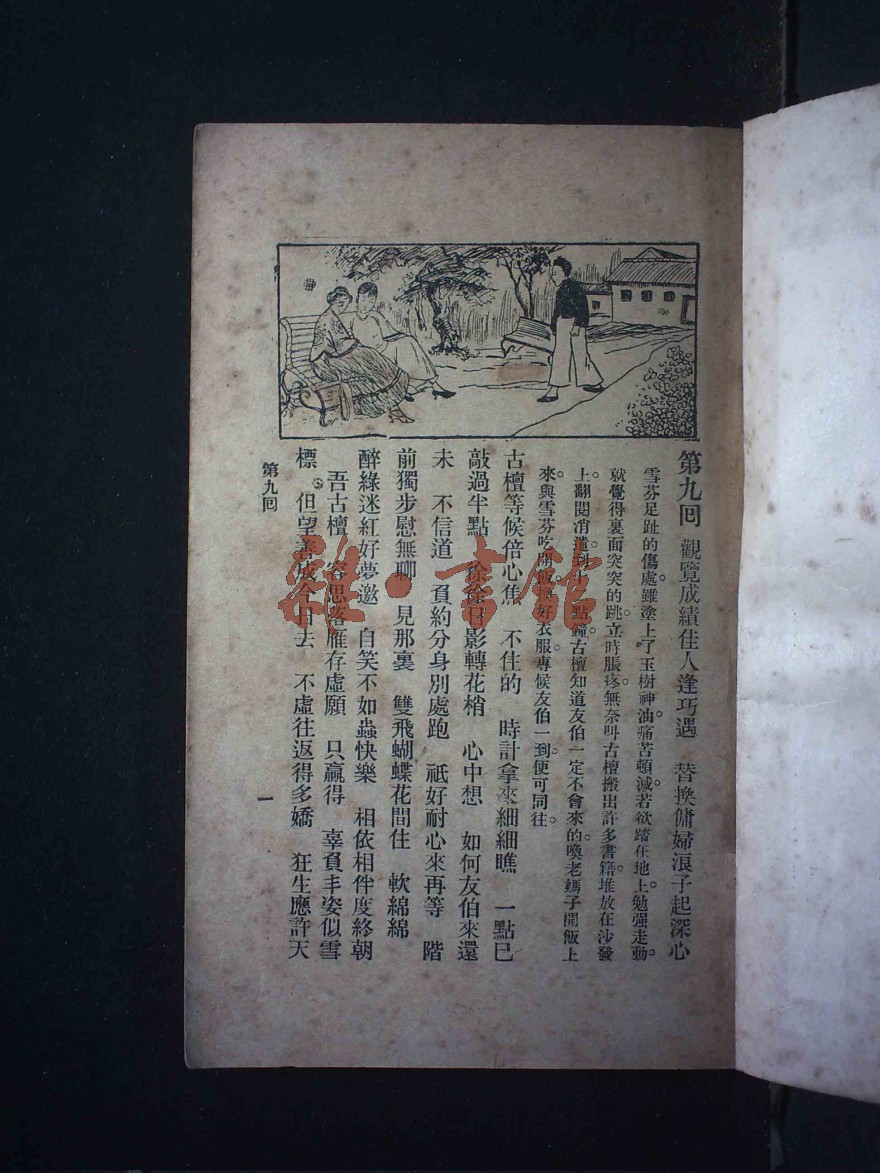 第九回 觀覽成績佳人逢巧遇 替換傭婦浪子起深心
雪芬足趾的傷處。雖塗上了玉樹神油。痛苦頓減。若欲踏在地上。勉强走動。
就覺得裏面突突的跳。立時脹疼。無奈叫古檀搬出許多書籍。堆放在沙發
上。翻閱消遣。到十二點鐘。古檀知道友伯一定不會來的。喚老媽子開飯上
來。與雪芬吃開飯。換好衣服。專候友伯一到。便可同往。
古檀等候倍心焦 不住的 時計拿來細細瞧 一點已
敲過半點 徐徐日影轉花梢 心中想 如何友伯來還
未 不信道 負約分身別處跑 祇好耐心來再等 階
前獨步慰無聊 見那裏 雙飛蝴蝶花間住 軟綿綿
醉綠迷紅好夢邀 自笑不如蟲快樂 相依相伴度終朝
吾古檀 容思落雁存虛願 只贏得 辜負丰姿似雪
標 但望善成今日去 不虛往返得多嬌 狂生應許天
第九回
一
雜·書館